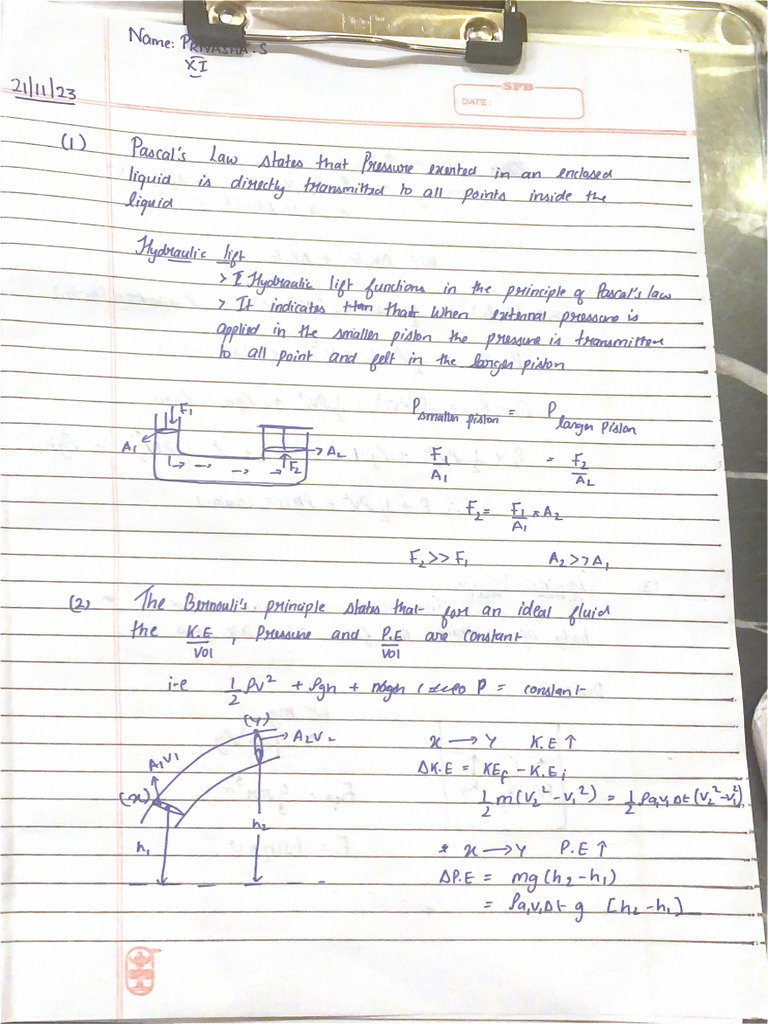 Name: PRIYASHA.S
XI
21/11/23
SPB
DATE:
(1) Pascal's Law states that Pressure exerted in an enclosed
liquid is directly transmitted to all points inside the
liquid
Hydraulic lift
> Hydraulic lift functions in the principle of Pascal's law
> It indicates that when external pressure is
applied in the smaller piston the pressure is transmitted
to all point and felt in the larger piston
F1
A1
A2
F2
P smaller piston = P larger piston
F1/A1 = F2/A2
F2 = F1/A1 × A2
F2 >> F1 A2 >> A1
(2) The Bernouli's principle states that for an ideal fluid
the K.E/Vol, Pressure and P.E/Vol are constant
i-e 1/2 ρv² + ρgh + P = constant
(Y)
A2V2
A1V1
(x)
h1
h2
x → Y K.E ↑
ΔK.E = KEf - K.Ei
1/2 m(V2² - V1²) = 1/2 ρa1v1Δt (V2² - V1²)
* x → Y P.E ↑
ΔP.E = mg(h2 - h1)
= ρa1v1Δt g [h2 - h1]
SPB